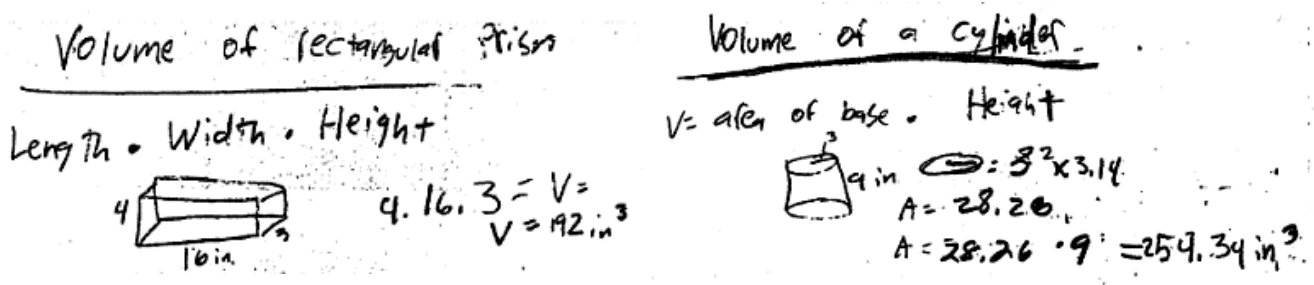 Volume of rectangular Prism
Length • Width • Height
4
16 in.
3
4. 16. 3 = V =
V = 192 in³
Volume of a cylinder
V = area of base • Height
3
9 in
= 3² x 3.14
A = 28.26
A = 28.26 • 9 = 254.34 in³